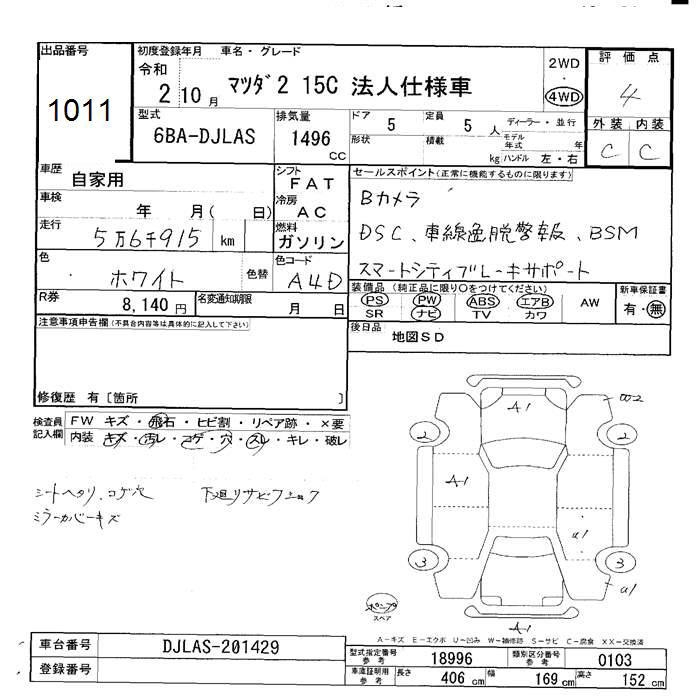 出品番号
1011
初度登録年月 車名・グレード
令和
2 10月 マツダ2 15C 法人仕様車
2WD
・
4WD
評価点
4
外装 内装
C C
型式
6BA-DJLAS
排気量
1496
CC
ドア 定員 ディーラー・並行
5 5 人
形状 積載 モデル年式 年
kg ハンドル 左・右
車歴
自家用
シフト
FAT
車検
年 月( 日)
冷房
AC
走行
5万6千915 km
燃料
ガソリン
色
ホワイト 色替
色コード
A4D
R券
8,140円
名変通知期限
月 日
セールスポイント(正常に機能するものに限ります)
Bカメラ
DSC、車線逸脱警報、BSM
スマートシティブレーキサポート
装備品 (純正品に限り○をつけてください) 新車保証書
PS PW ABS エアB AW 有・無
SR ナビ TV カワ
後日品
地図SD
注意事項申告欄(不具合内容等は具体的に記入して下さい)
修復歴 有〔箇所 〕
検査員
記入欄
FW キズ・飛石・ヒビ割・リペア跡・×要
内装 キズ・汚レ・コゲ・穴・スレ・キレ・破レ
シートヘタリ、コゲ穴 下廻リサビフェック
ミラーカバーキズ
A1
2 2
A1
a1
3 3
a1
A1
スペア
A-キズ E-エクボ U-凹み W-補修跡 S-サビ C-腐食 XX-交換済
車台番号 DJLAS-201429
登録番号
型式指定番号
参考
18996
類別区分番号
参考
0103
車庫証明用
参考
長さ 406 cm 幅 169 cm 高さ 152 cm